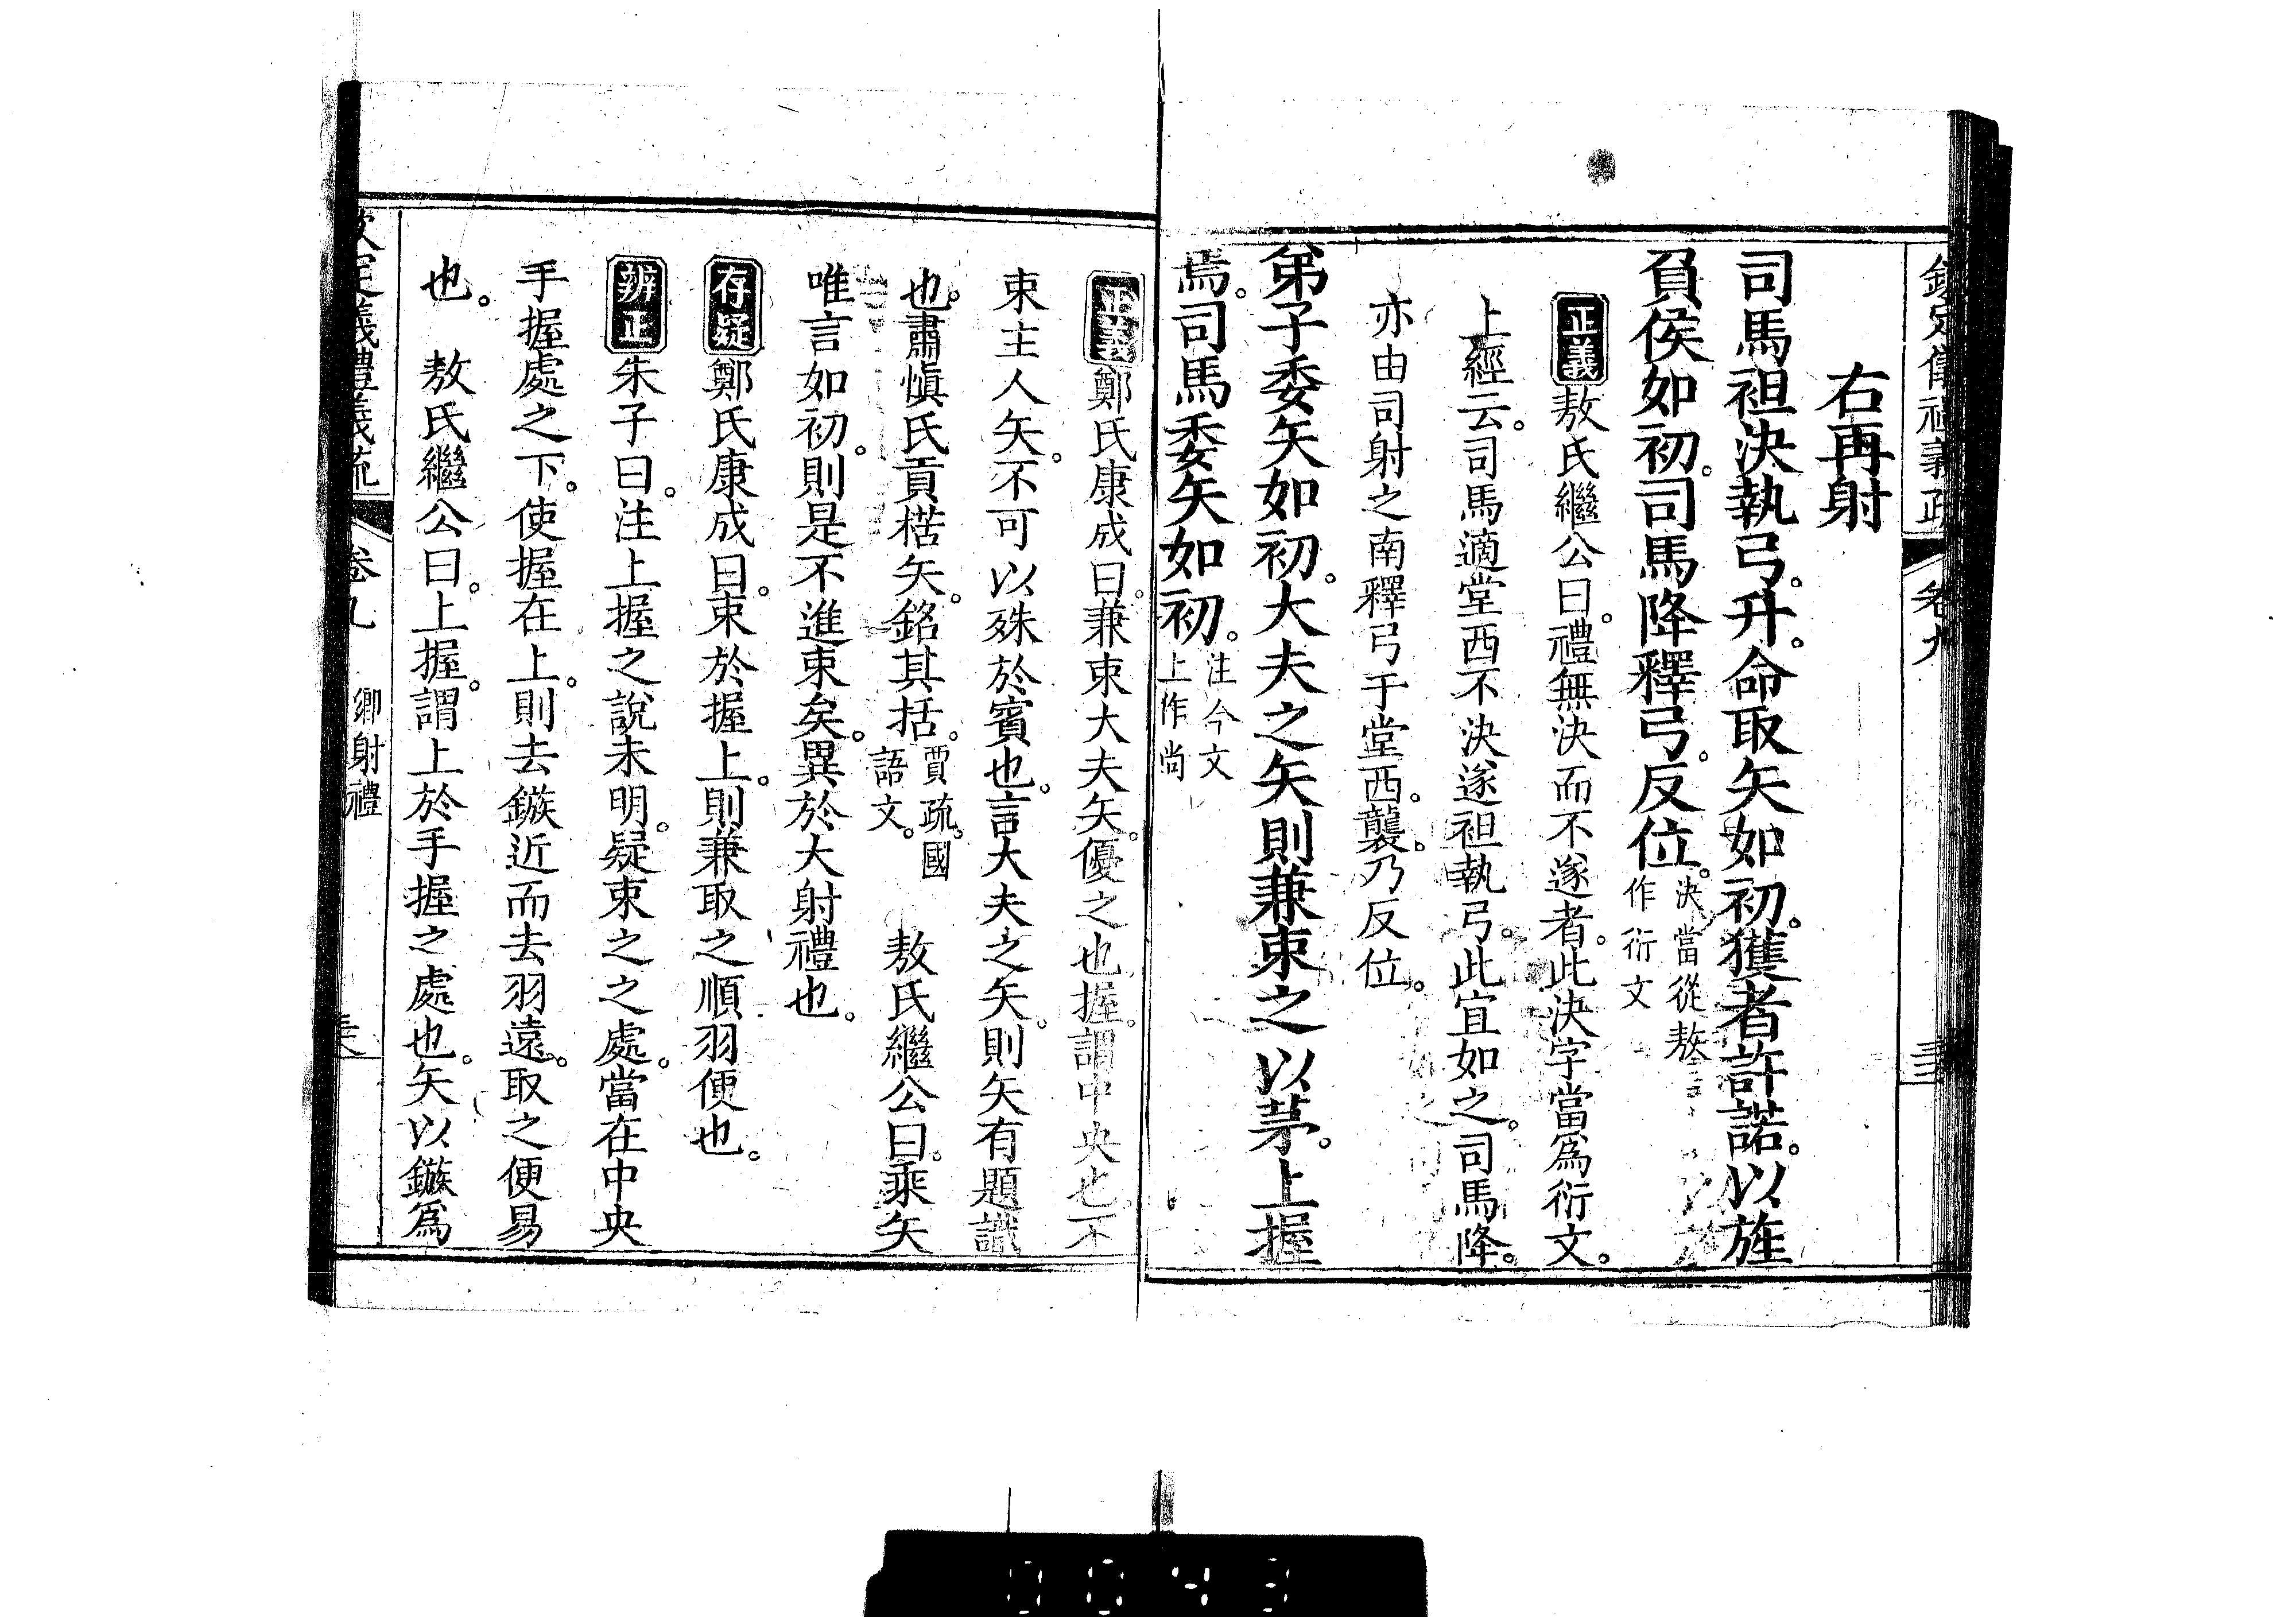 欽定儀禮義疏 卷九
右再射
司馬袒決執弓。升。命取矢如初。獲者許諾。以旌
負侯如初。司馬降釋弓。反位。決當從敖
作衍文
正義敖氏繼公曰。禮無決而不遂者。此決字當爲衍文。
上經云。司馬適堂西不決遂袒執弓。此宜如之。司馬降。
亦由司射之南釋弓于堂西。襲。乃反位。
弟子委矢如初。大夫之矢則兼束之以茅。上握
焉。司馬委矢如初。注今文
上作尚
正義鄭氏康成曰。兼束大夫矢。優之也。握。謂中央也。不
束主人矢。不可以殊於賓也。言大夫之矢。則矢有題識
也。肅愼氏貢楛矢。銘其括。賈疏。國
語文。 敖氏繼公曰。乘矢
唯言如初。則是不進束矣。異於大射禮也。
存疑鄭氏康成曰。束於握上。則兼取之順羽便也。
辨正朱子曰。注上握之說未明。疑束之之處。當在中央
手握處之下。使握在上。則去鏃近而去羽遠。取之便易
也。 敖氏繼公曰。上握。謂上於手握之處也。矢以鏃爲
欽定儀禮義疏 卷九 鄉射禮